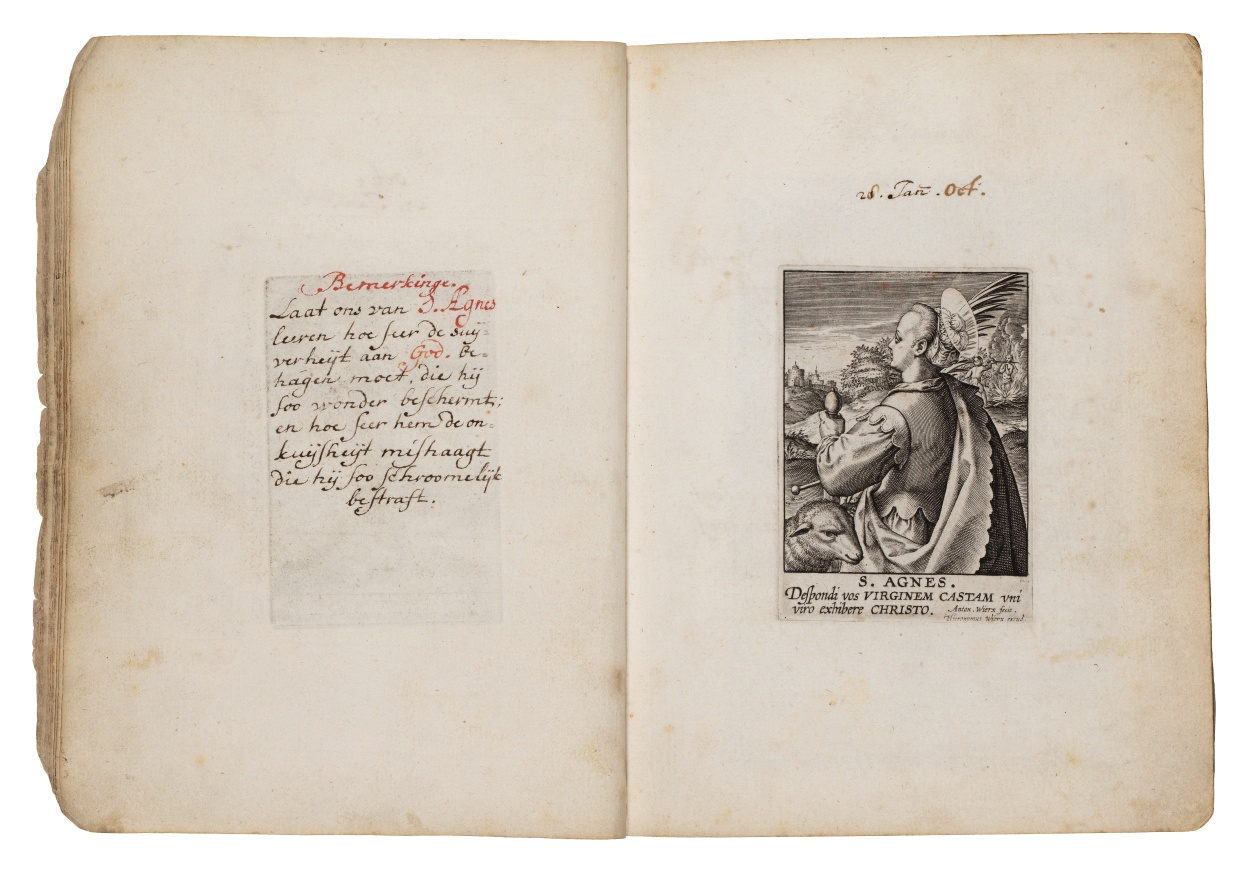 Bemerkinge.
Laat ons van S. Agnes
leeren hoe seer de suij-
verheijt aan God. be-
hagen moet, die hij
soo wonder beschermt;
en hoe seer hem de on-
kuijsheijt mishaagt
die hij soo schroomelijk
bestraft.
28. Jan̄. Oct.
S. AGNES.
Despondi vos VIRGINEM CASTAM vni
viro exhibere CHRISTO.
Anton. Wierx fecit.
Hieronymus Wierx excud.